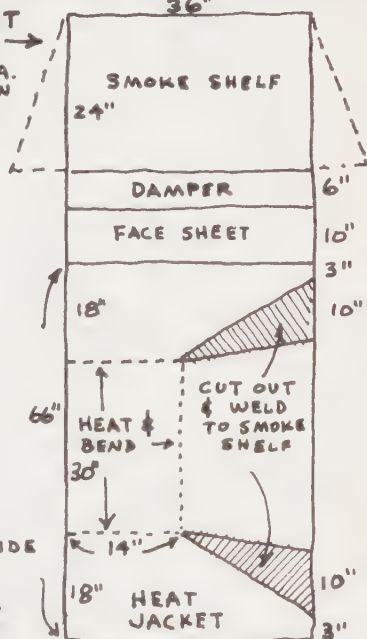 36"
T
A.
N
SMOKE SHELF
24"
DAMPER
6"
FACE SHEET
10"
3"
18"
10"
66"
HEAT &
BEND
30"
CUT OUT
& WELD
TO SMOKE
SHELF
IDE
14"
18"
HEAT
JACKET
10"
3"